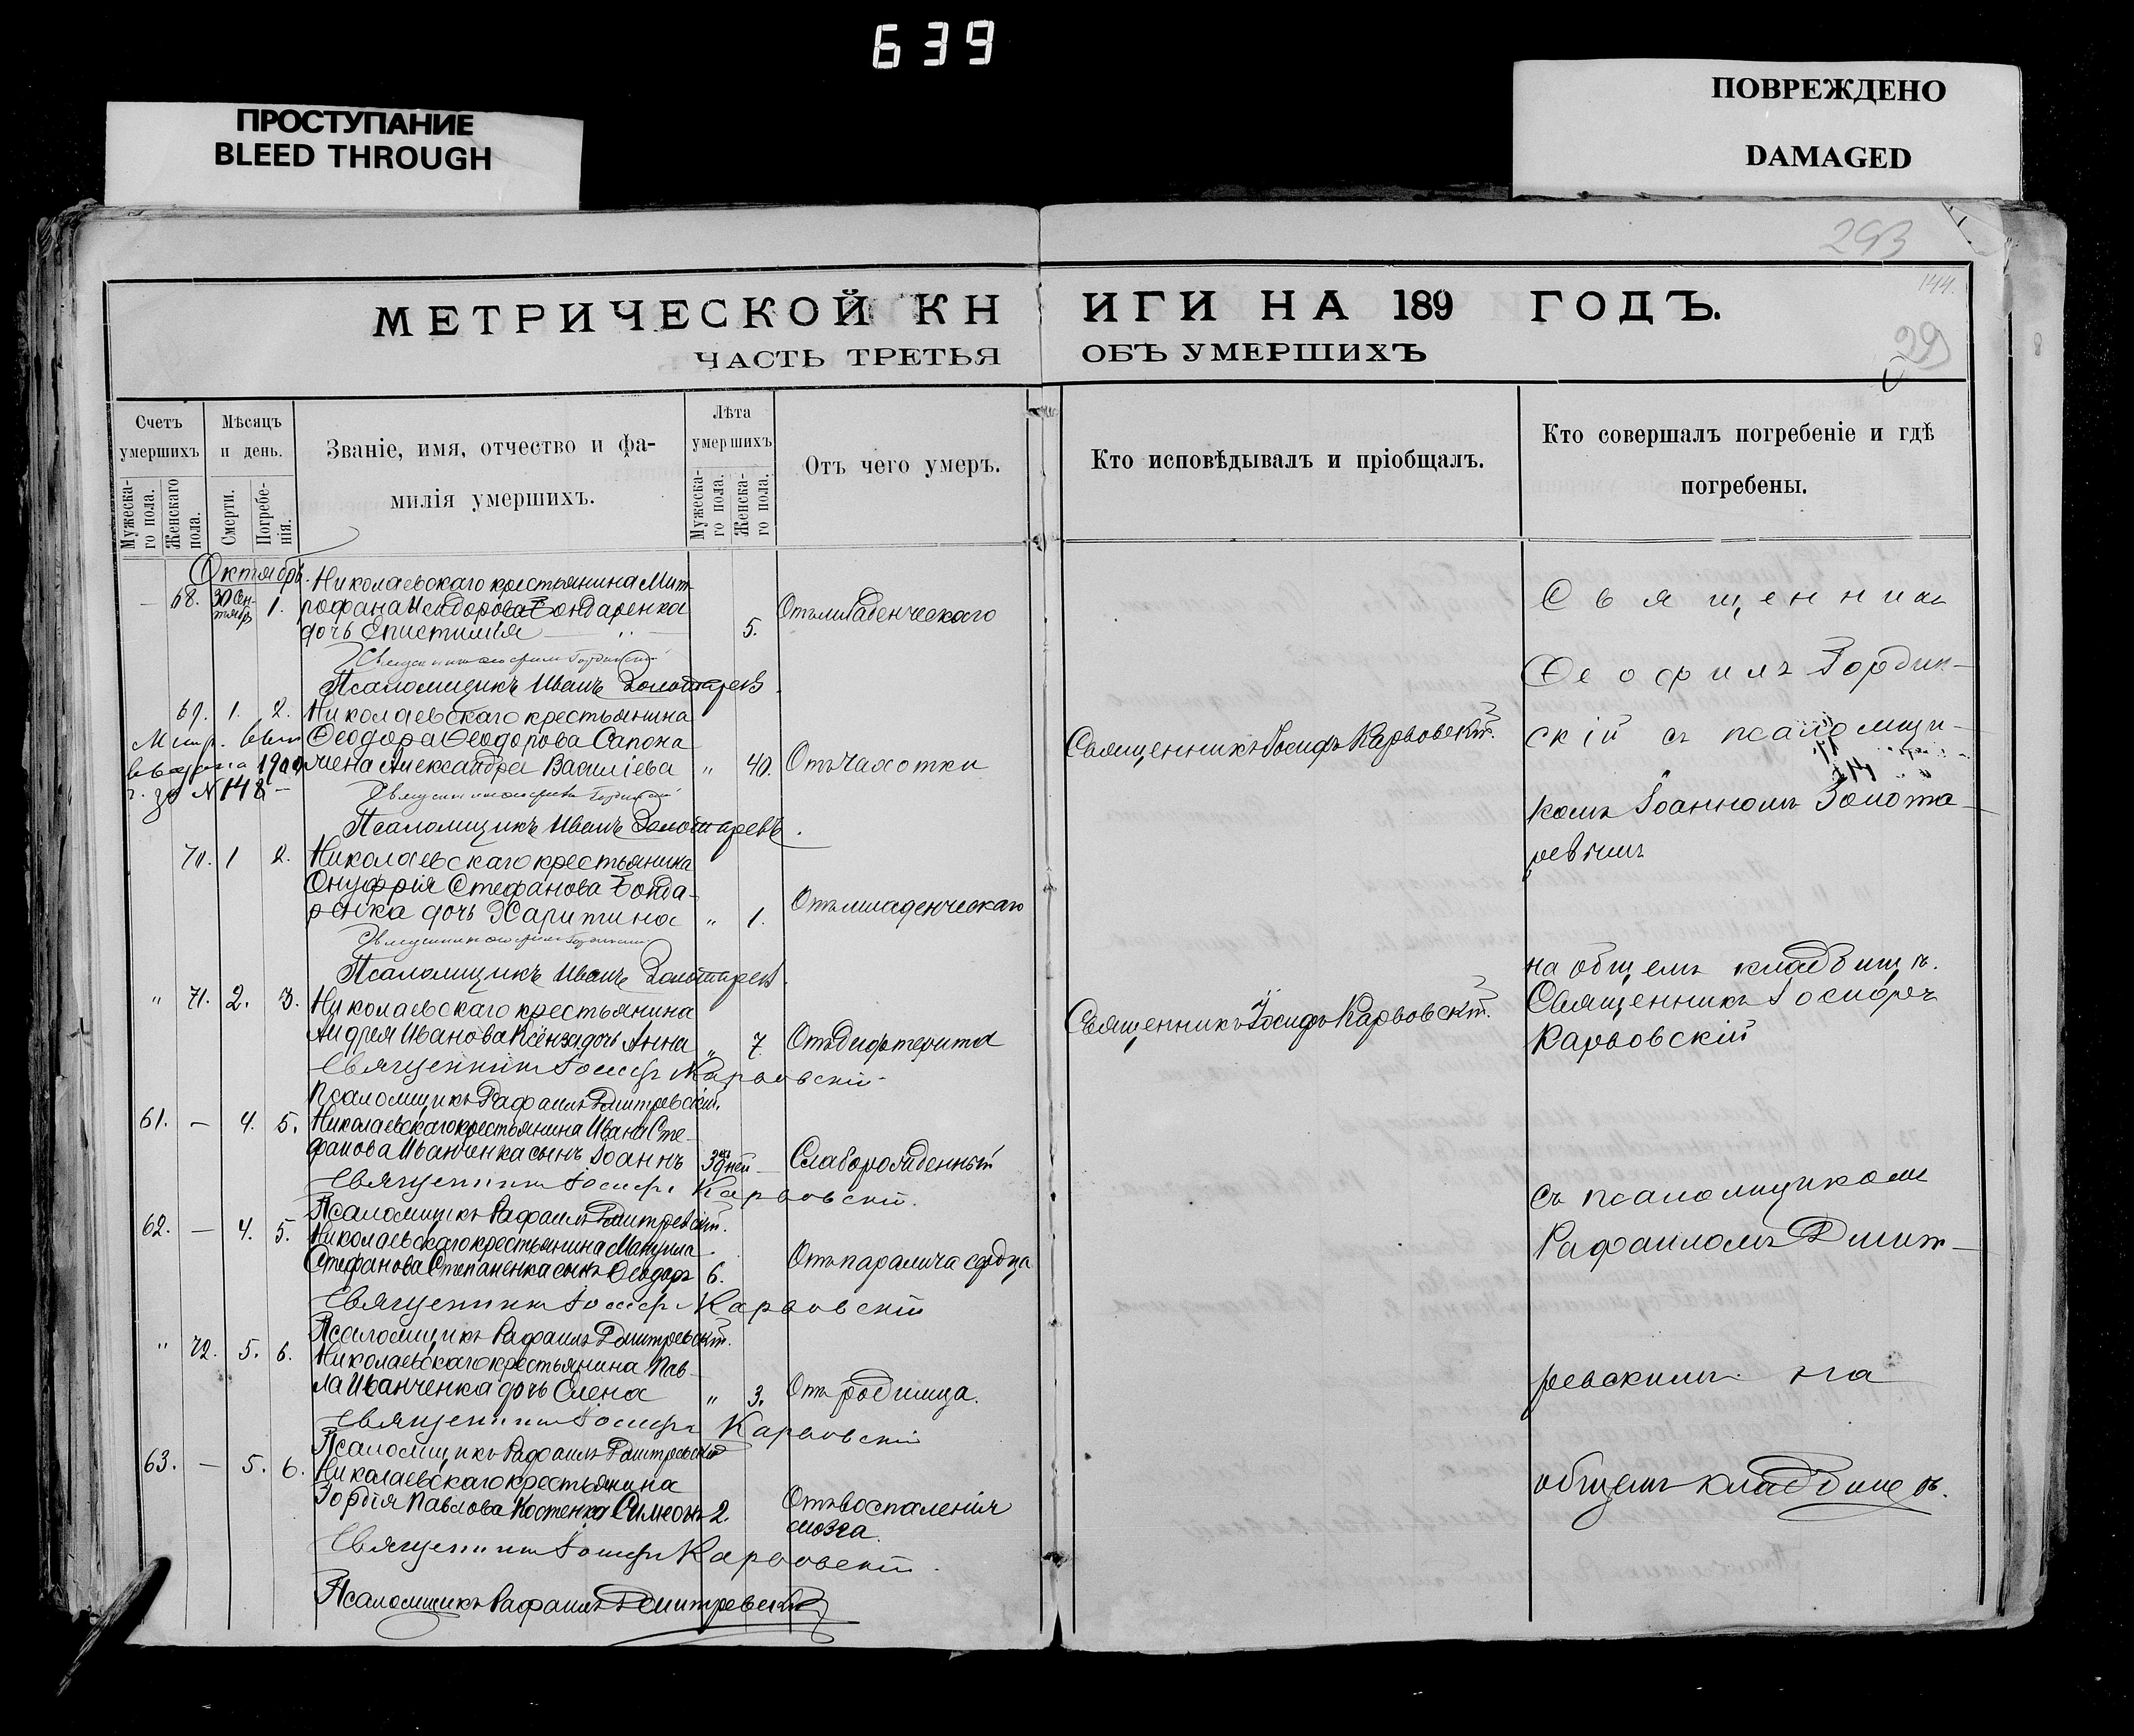 639
ПРОСТУПАНИЕ
BLEED THROUGH
ПОВРЕЖДЕНО
DAMAGED
293
144.
29
МЕТРИЧЕСКОЙ КН
ИГИ НА 189 ГОДЪ.
ЧАСТЬ ТРЕТЬЯ
ОБЪ УМЕРШИХЪ
Счетъ умершихъ
Мужеска-го пола.
Женскаго пола.
Мѣсяцъ и день.
Смерти.
Погребе-нія.
Званіе, имя, отчество и фа-
милія умершихъ.
Лѣта умершихъ
Мужеска-го пола.
Женска-го пола.
Отъ чего умеръ.
Кто исповѣдывалъ и пріобщалъ.
Кто совершалъ погребеніе и гдѣ
погребены.
Октябрь.
Николаевскаго крестьянина Мит-
— 68. 30 Сен-тябр 1. рофана Исидорова Бондаренка
дочь Епистимія 5. Отъ младенческаго
Псаломщикъ Иванъ Золотаревъ.
69. 1. 2. Николаевскаго крестьянина
Ѳеодора Ѳеодорова Сапона
жена Александра Василіева " 40. Отъ чахотки
Метр. вып
выдана 1909
г. за № 148 —
Псаломщикъ Иванъ Золотаревъ.
70. 1 2. Николаевскаго крестьянина
Онуфрія Стефанова Бонда-
ренка дочь Харитина " 1. Отъ младенческаго
Псаломщикъ Иванъ Золотаревъ.
" 71. 2. 3. Николаевскаго крестьянина
Андрея Иванова Ксёнза дочь Анна " 7. Отъ дифтерита
Священникъ Іосифъ Карвовскій
Псаломщикъ Рафаилъ Дмитревскій.
61. — 4. 5. Николаевскаго крестьянина Ивана Сте-
фанова Иванченка сынъ Іоаннъ 3 дней — Слаборожденный
Священникъ Іосифъ Карвовскій.
Псаломщикъ Рафаилъ Дмитревскій.
62. — 4. 5. Николаевскаго крестьянина Мануила
Стефанова Степаненка сынъ Ѳеодоръ 6. Отъ паралича сердца
Священникъ Іосифъ Карвовскій
Псаломщикъ Рафаилъ Дмитревскій.
" 72. 5. 6. Николаевскаго крестьянина Пав-
ла Иванченка дочь Елена " 3. Отъ родимца.
Священникъ Іосифъ Карвовскій
Псаломщикъ Рафаилъ Дмитревскій
63. — 5. 6. Николаевскаго крестьянина
Гордія Павлова Костенка Симеонъ 2. Отъ воспаленія
мозга.
Священникъ Іосифъ Карвовскій.
Псаломщикъ Рафаилъ Дмитревскій
Священникъ Іосифъ Карвовскій.
Священникъ Іосифъ Карвовскій.
Священникъ
Ѳеофилъ Гордин-
скій съ псаломщи-
комъ Іоанномъ Золота-
ревымъ
на общемъ кладбищѣ.
Священникъ Іосифъ
Карвовскій
съ псаломщикомъ
Рафаиломъ Дмит-
ревскимъ на
общемъ кладбищѣ.